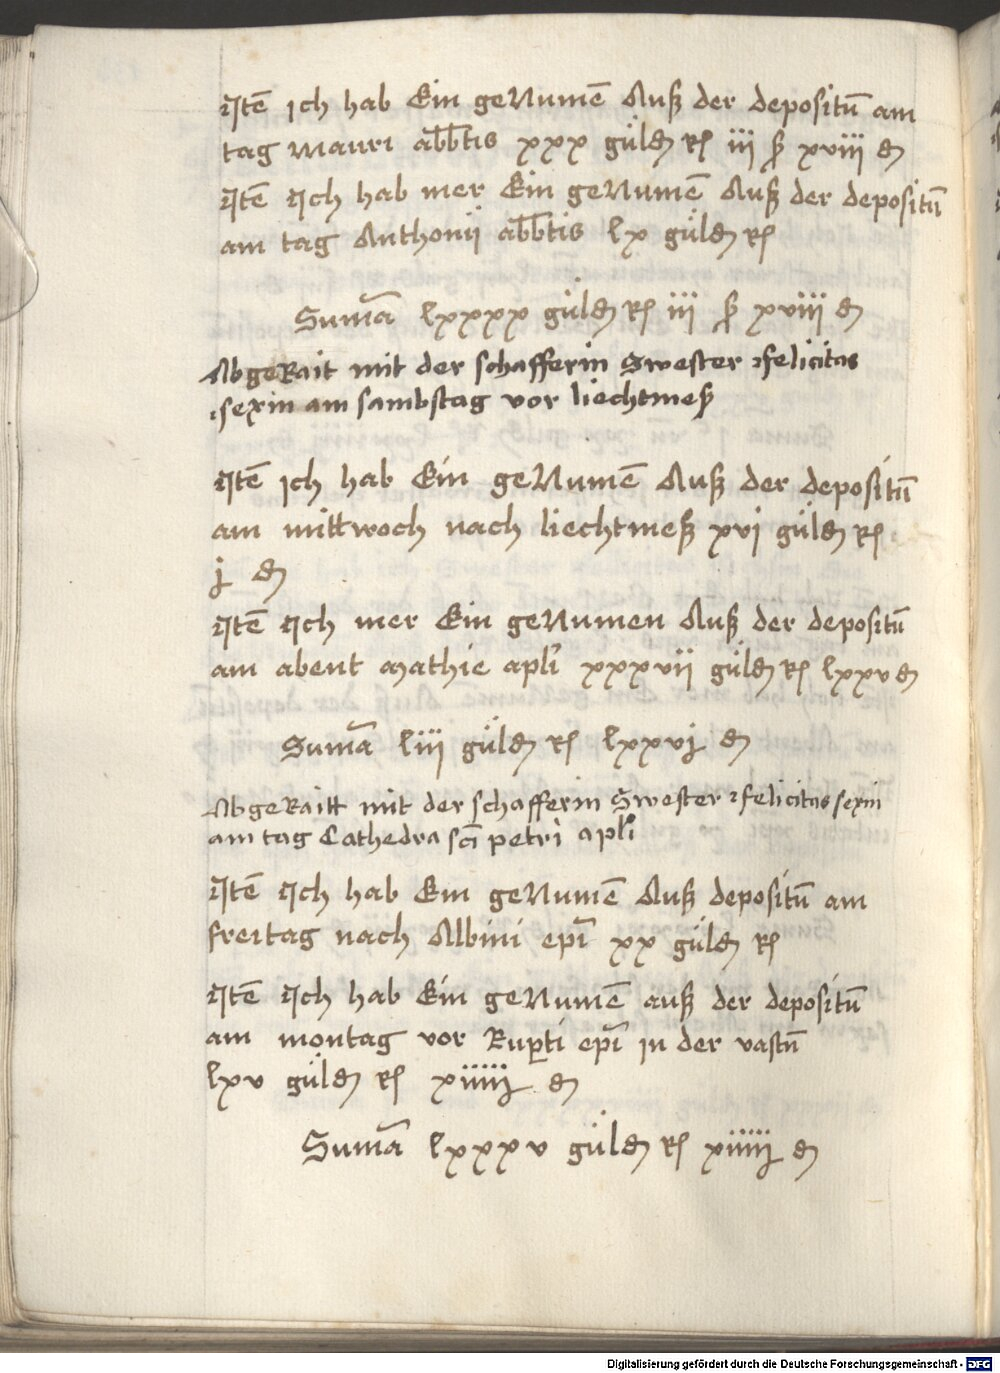 Itē ich hab Ein geNumē Auß der depositū am
tag Mauri abbtis xxx güld̄ rł iii ß xviii d̄
Itē Ich hab mer Ein geNumē Auß der depositū
am tag Anthonij abbtis lx güld̄ rł
Sum̄a lxxxx güld̄ rł iii ß xviii d̄
AbgeRait mit der schafferin Swester felicitas
sexin am sambstag vor liechtmeß
Itē ich hab Ein geNumē Auß der depositū
am mittwoch nach liechtmeß xvi güld̄ rł
j d̄
Itē Ich mer Ein geNumen Auß der depositū
am abent Mathie apl̄i xxxvii güld̄ rł lxxv d̄
Sum̄a liii güld̄ rł lxxvj d̄
AbgeRaitt mit der schafferin Swester felicitas sexin
am tag Cathedra sc̄i petri apl̄i
Itē Ich hab Ein geNumē Auß depositū am
freitag nach Albini ep̄i xx güld̄ rł
Itē Ich hab Ein geNumē auß der depositū
am montag vor Rup̱ti ep̄i in der vastū
lxv güld̄ rł xiiiij d̄
Sum̄a lxxxv güld̄ rł xiiiij d̄
Digitalisierung gefördert durch die Deutsche Forschungsgemeinschaft - DFG